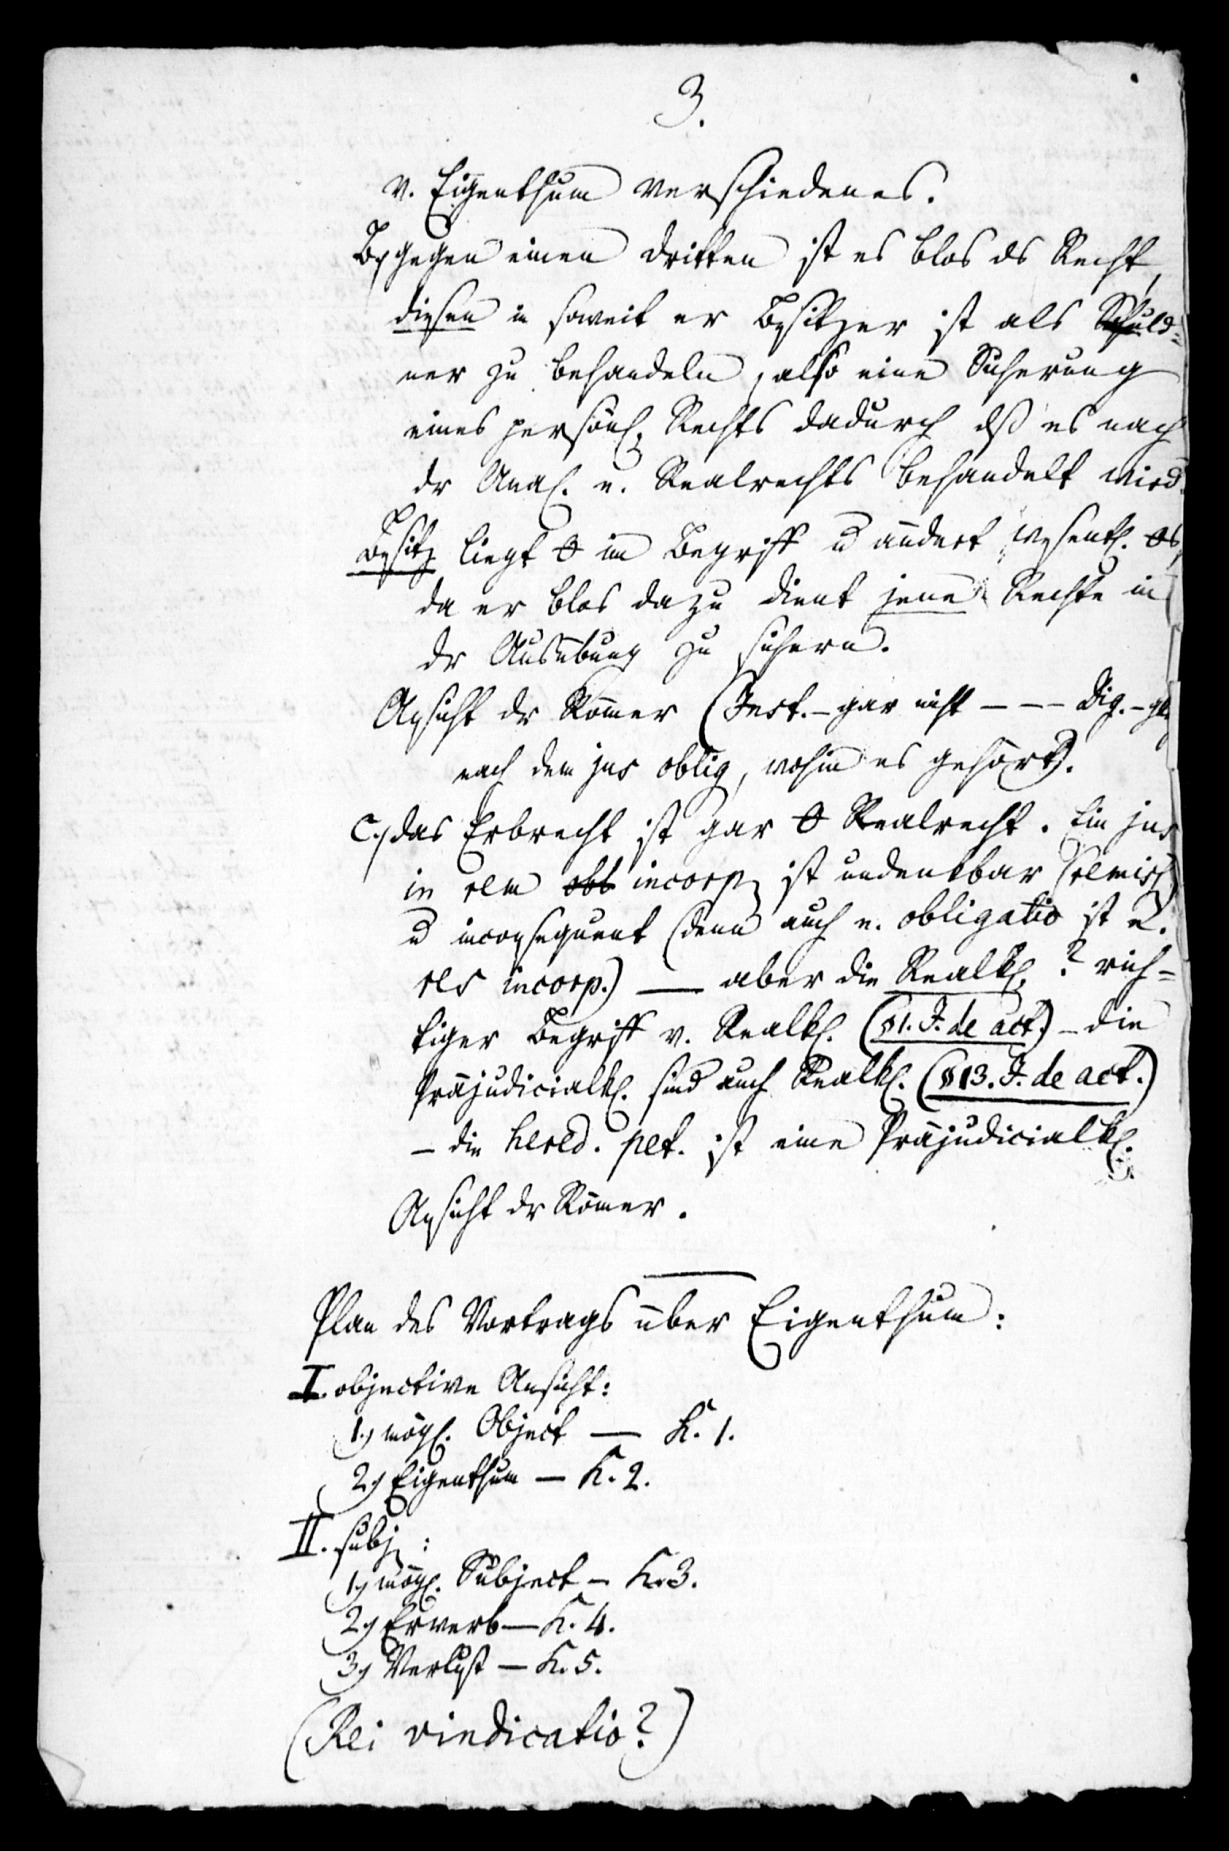 3.
v. Eigenthum verschiedenes.
B) gegen einen dritten ist es blos ds Recht,
diesen in soweit er Besitzer ist als Schuld-
ner zu behandeln, also eine Sicherung
eines persönl. Rechts dadurch dß es nach
dr Anal. e. Realrechts behandelt wird.
Besitz liegt 0 im Begriff u ändert wesentl. 0s,
da er blos dazu dient jene Rechte in
dr Ausübung zu sichern.
Ansicht dr Römer (Inst. – gar nicht – – – Dig. –
nach dem jus oblig, wohin es gehört).
C.) das Erbrecht ist gar 0 Realrecht. Ein jus
in rem obl incorp. ist undenkbar
u inconsequent (denn auch e. obligatio ist e.
res incorp.) — aber die Realkl.? rich-
tiger Begriff v. Realkl. (§ 1. J. de act.) – die
Präjudicialkl. sind auch Realkl. (§ 13. J. de act.)
– die hered. pet. ist eine Präjudicialkl.
Ansicht dr Römer.
Plan des Vortrags über Eigenthum:
I. objective Ansicht:
1.) mögl. Object — K. 1.
2.) Eigenthum — K. 2.
II. subj.:
1.) mögl. Subject – K. 3.
2.) Erwerb — K. 4.
3.) Verlust — K. 5.
(Rei vindicatio?)